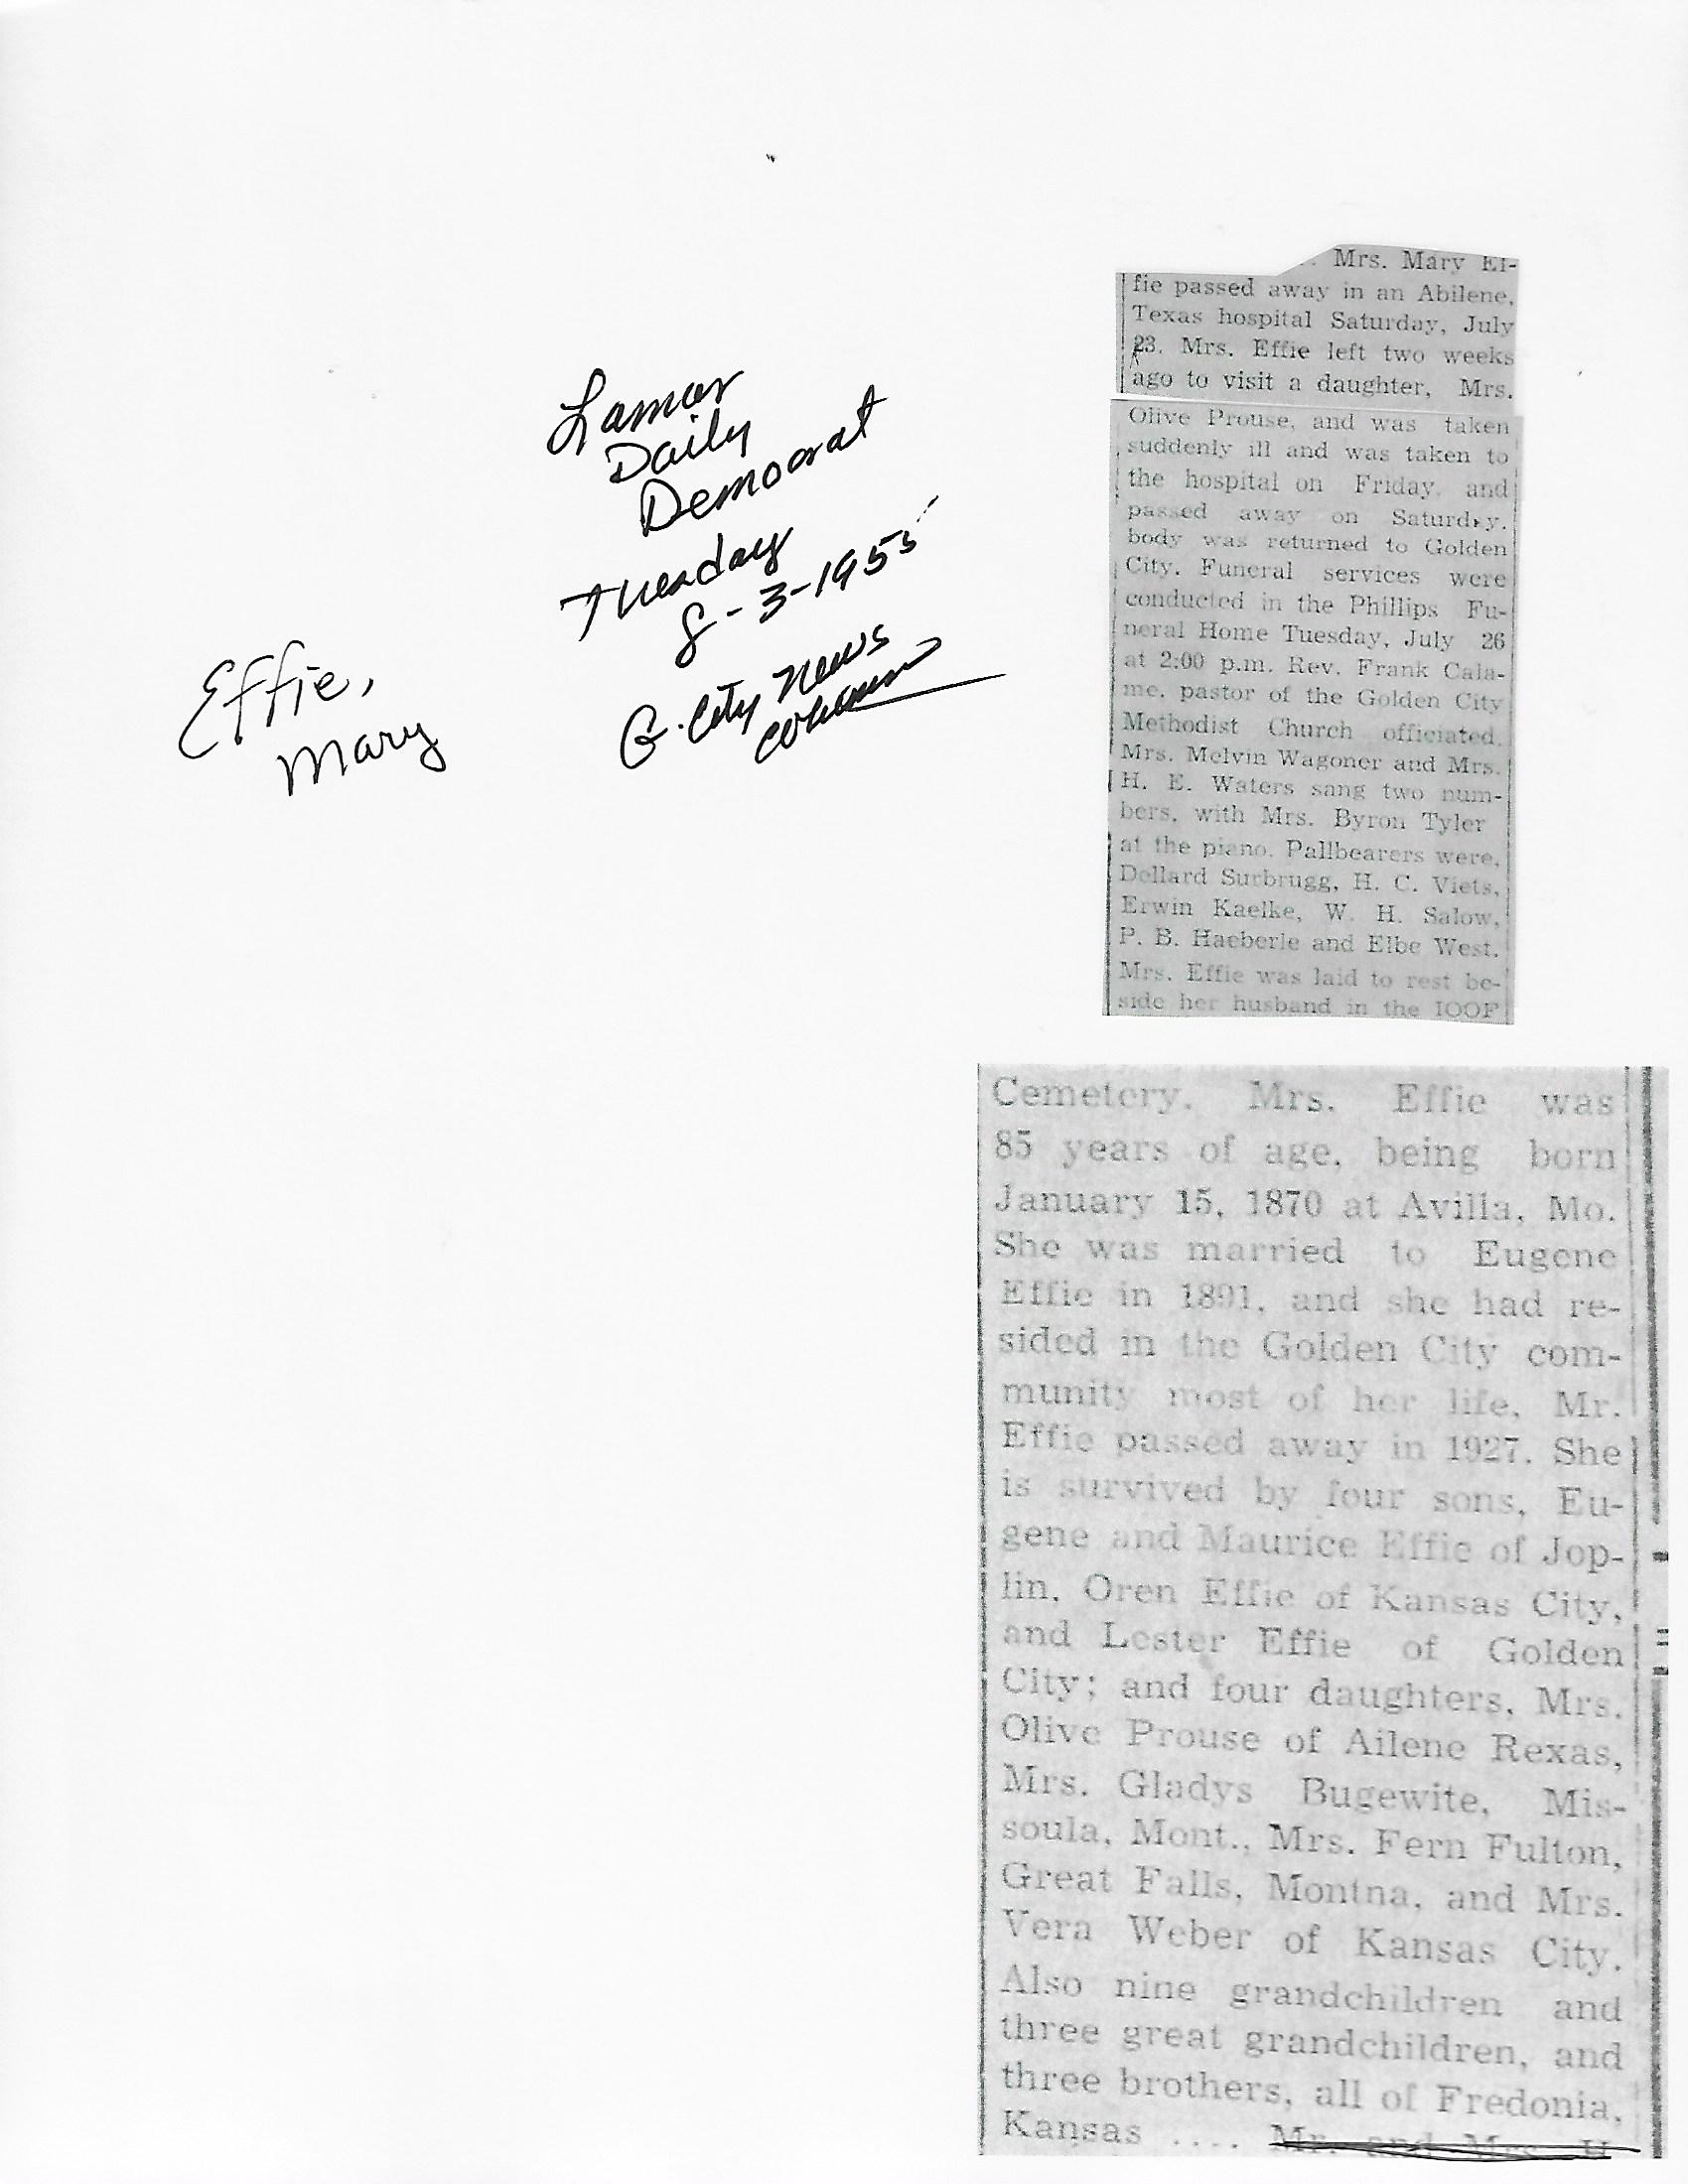 Effie,
Mary
Lamar
Daily
Democrat
Tuesday
8-3-1955
G. City News
column
Mrs. Mary Ef-
fie passed away in an Abilene,
Texas hospital Saturday, July
23. Mrs. Effie left two weeks
ago to visit a daughter, Mrs.
Olive Prouse, and was taken
suddenly ill and was taken to
the hospital on Friday, and
passed away on Saturday.
body was returned to Golden
City. Funeral services were
conducted in the Phillips Fu-
neral Home Tuesday, July 26
at 2:00 p.m. Rev. Frank Cala-
me, pastor of the Golden City
Methodist Church officiated.
Mrs. Melvin Wagoner and Mrs.
H. E. Waters sang two num-
bers, with Mrs. Byron Tyler
at the piano. Pallbearers were,
Dellard Surbrugg, H. C. Viets,
Erwin Kaelke, W. H. Salow,
P. B. Haeberle and Elbe West.
Mrs. Effie was laid to rest be-
side her husband in the IOOF
Cemetery. Mrs. Effie was
85 years of age, being born
January 15, 1870 at Avilla, Mo.
She was married to Eugene
Effie in 1891, and she had re-
sided in the Golden City com-
munity most of her life, Mr.
Effie passed away in 1927. She
is survived by four sons, Eu-
gene and Maurice Effie of Jop-
lin, Oren Effie of Kansas City,
and Lester Effie of Golden
City; and four daughters, Mrs.
Olive Prouse of Ailene Rexas,
Mrs. Gladys Bugewite, Mis-
soula, Mont., Mrs. Fern Fulton,
Great Falls, Montna, and Mrs.
Vera Weber of Kansas City.
Also nine grandchildren and
three great grandchildren, and
three brothers, all of Fredonia,
Kansas .... Mr. and Mrs. H